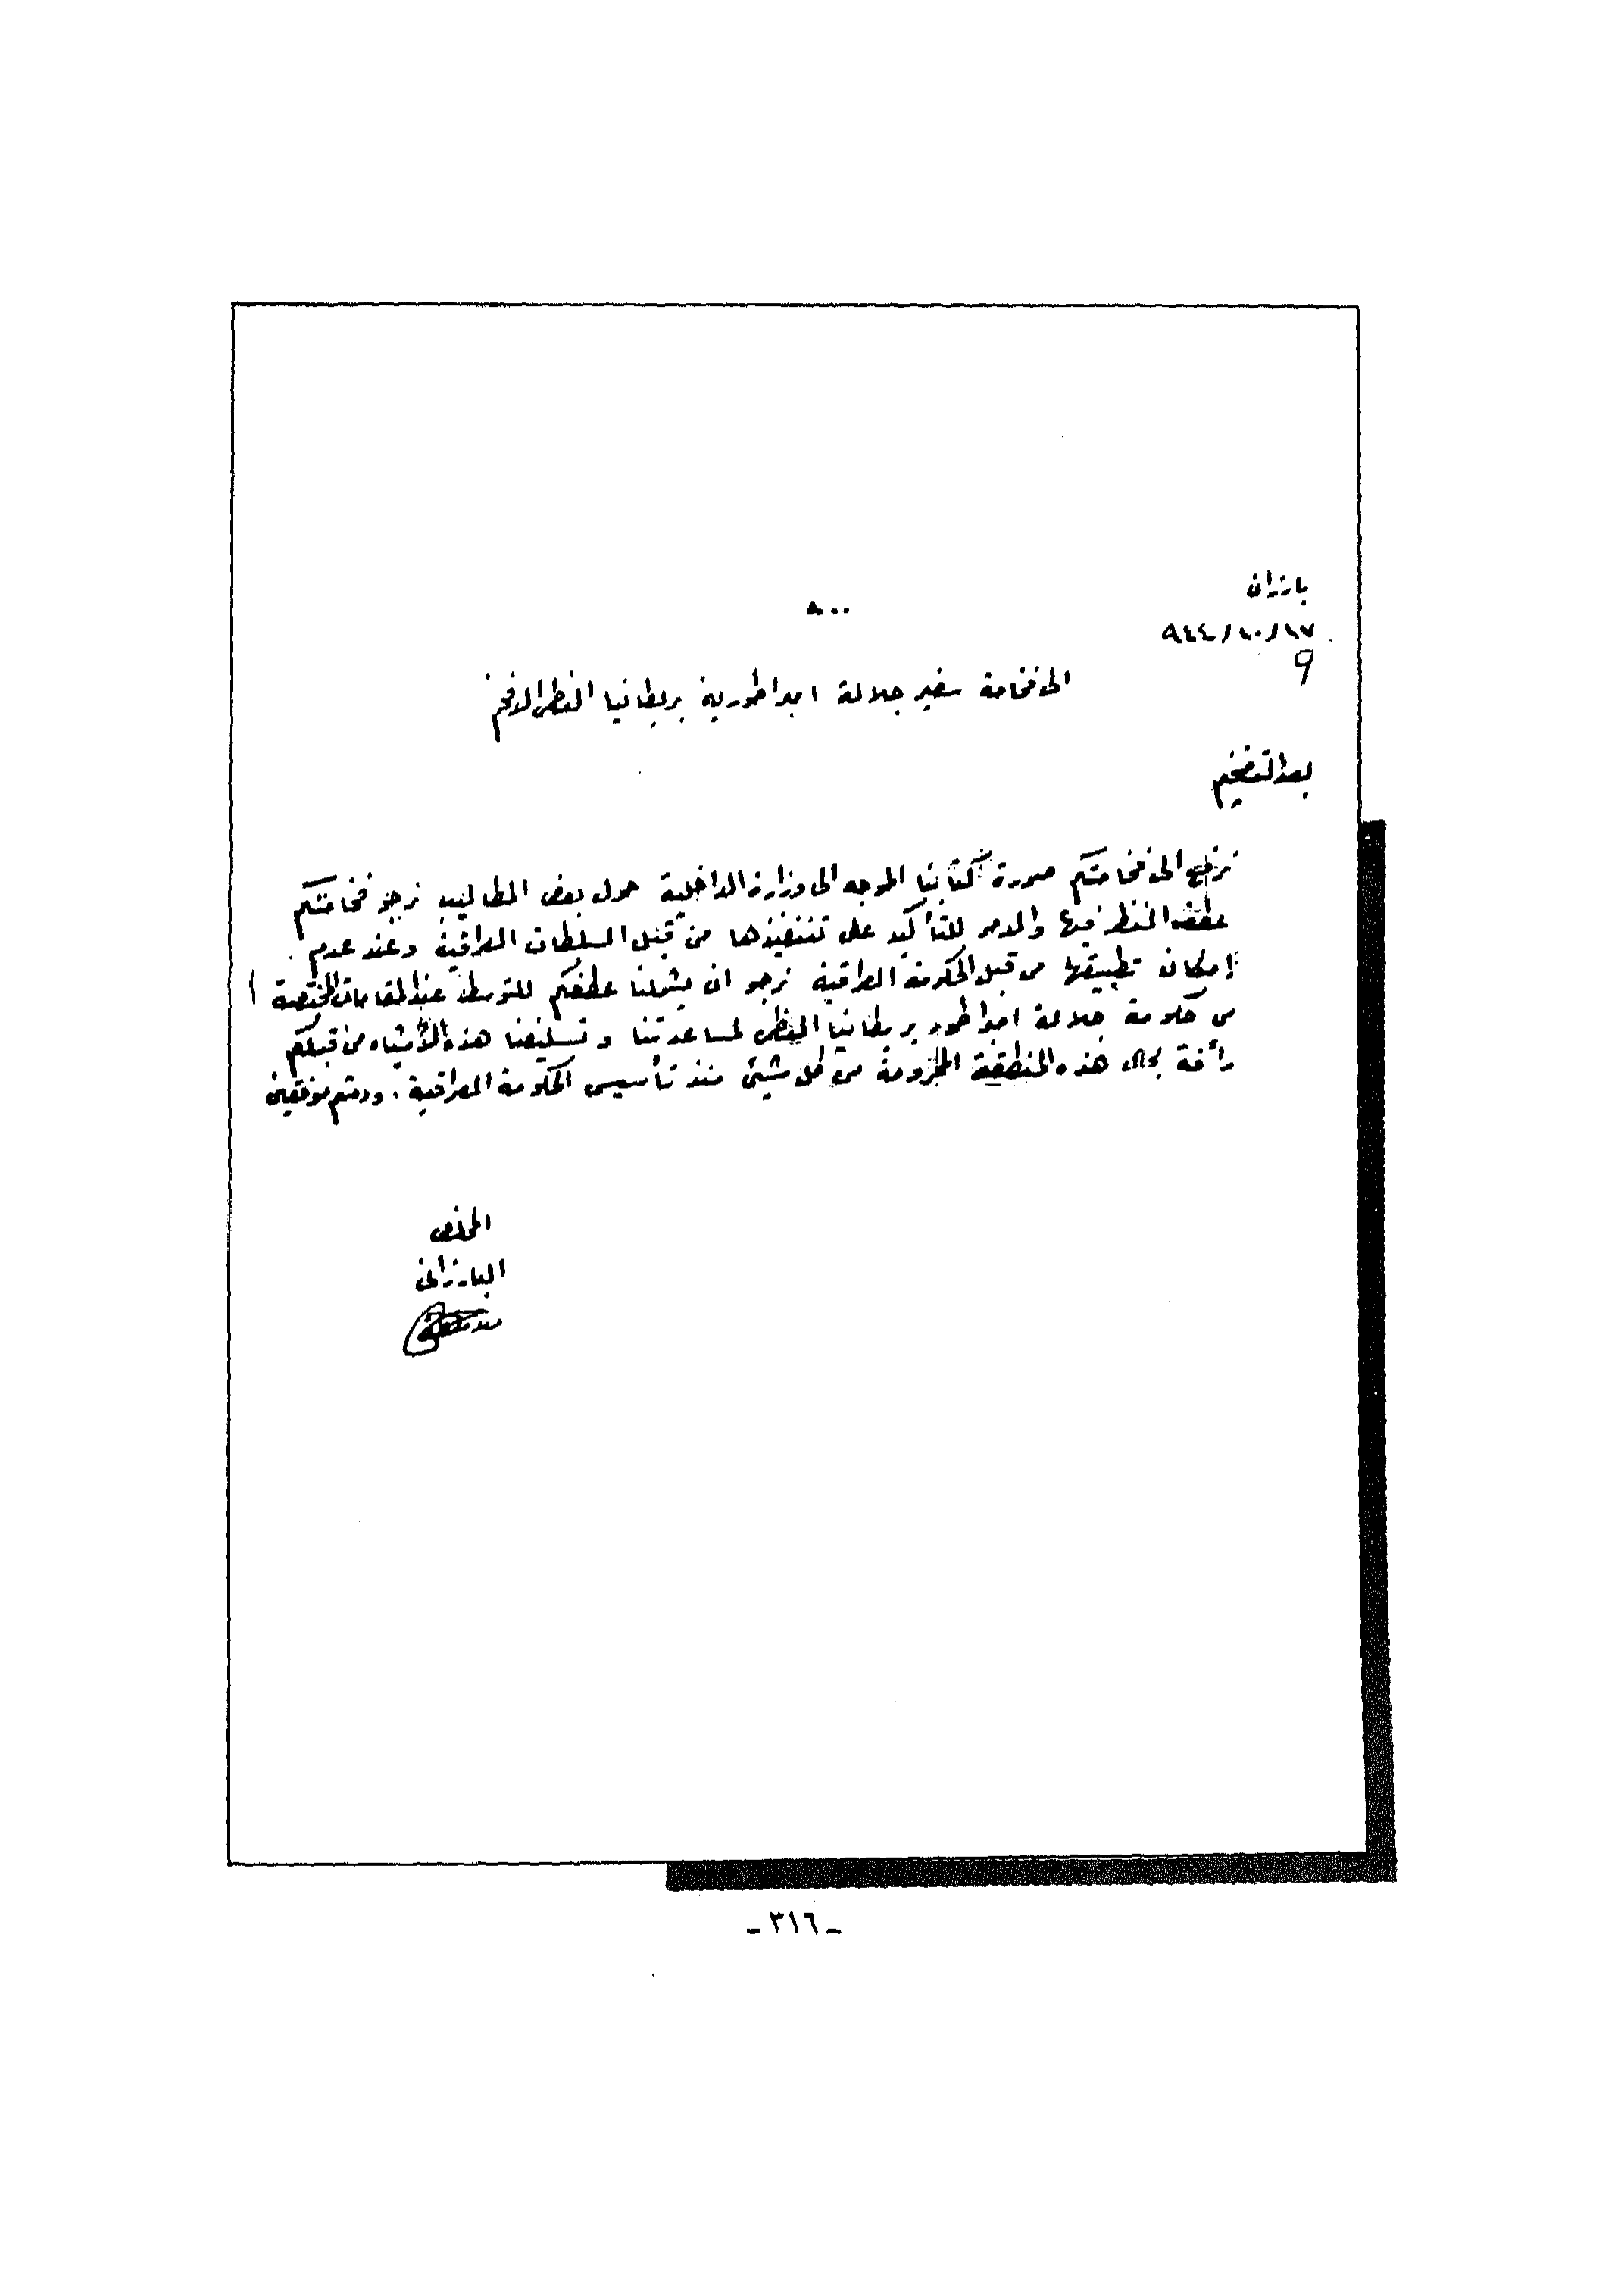 بارزان
٨٠٠
٩٤٤/١٠/١٧
٩
الى فخامة سفير جلالة امبراطورية بريطانيا العظمى الافخم
بعد التفخيم
نرفع الى فخامتكم صورة كتابنا الموجه الى وزارة الداخلية حول بعض المطاليب نرجو فخامتكم
عطف النظر فيها والامر للتأكيد على تنفيذها من قبل السلطات العراقية وعند عدم
إمكان تطبيقها من قبل الحكومة العراقية نرجو ان يشملنا عطفكم للتوسط عند المقامات المختصة
من حكومة جلالة امبراطور بريطانيا العظمى لمساعدتنا و تسليفنا هذه الأشياء من قبلكم
رأفة بحال هذه المنطقة المحرومة من كل شيئ منذ تأسيس الحكومة العراقية . ودمتم موفقين
المخلص
البارزاني
ـ ٣١٦ ـ